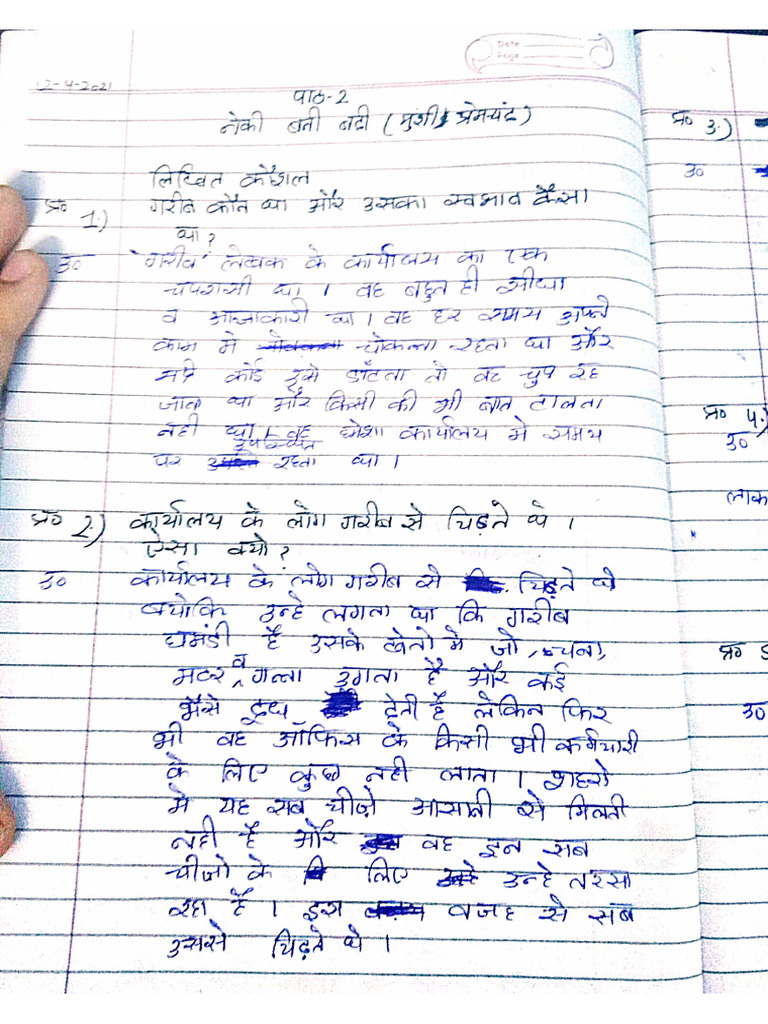 Date
Page
12-4-2021
पाठ-2
नेकी बनी बदी (मुंशी प्रेमचंद)
लिखित कौशल
प्र० 1.) गरीब कौन था और उसका स्वभाव कैसा
था?
उ० 'गरीब' लेखक के कार्यालय का एक
चपरासी था। वह बहुत ही सीधा
व आज्ञाकारी था। वह हर समय अपने
काम मे चौकन्ना रहता था और
कोई उसे डाँटता तो वह चुप रह
जाता था और किसी की भी बात टालता
नही था। वह हमेशा कार्यालय मे समय
पर उपस्थित रहता था।
प्र० 2.) कार्यालय के लोग गरीब से चिढ़ते थे।
ऐसा क्यो?
उ० कार्यालय के लोग गरीब से चिढ़ते थे
क्योकि उन्हे लगता था कि गरीब
घमंडी है उसके खेतो मे जो, चना,
मटर व गन्ना उगता है और कई
भैसे दूध देती है लेकिन फिर
भी वह ऑफिस के किसी भी कर्मचारी
के लिए कुछ नही लाता। शहरो
मे यह सब चीज़े आसानी से मिलती
नही है और वह इन सब
चीजो के लिए उन्हे तरसा
रहा है। इस वजह से सब
उससे चिढ़ते थे।
प्र० 3.)
उ०
प्र० 4.)
उ०
लाक
प्र० 5
उ०